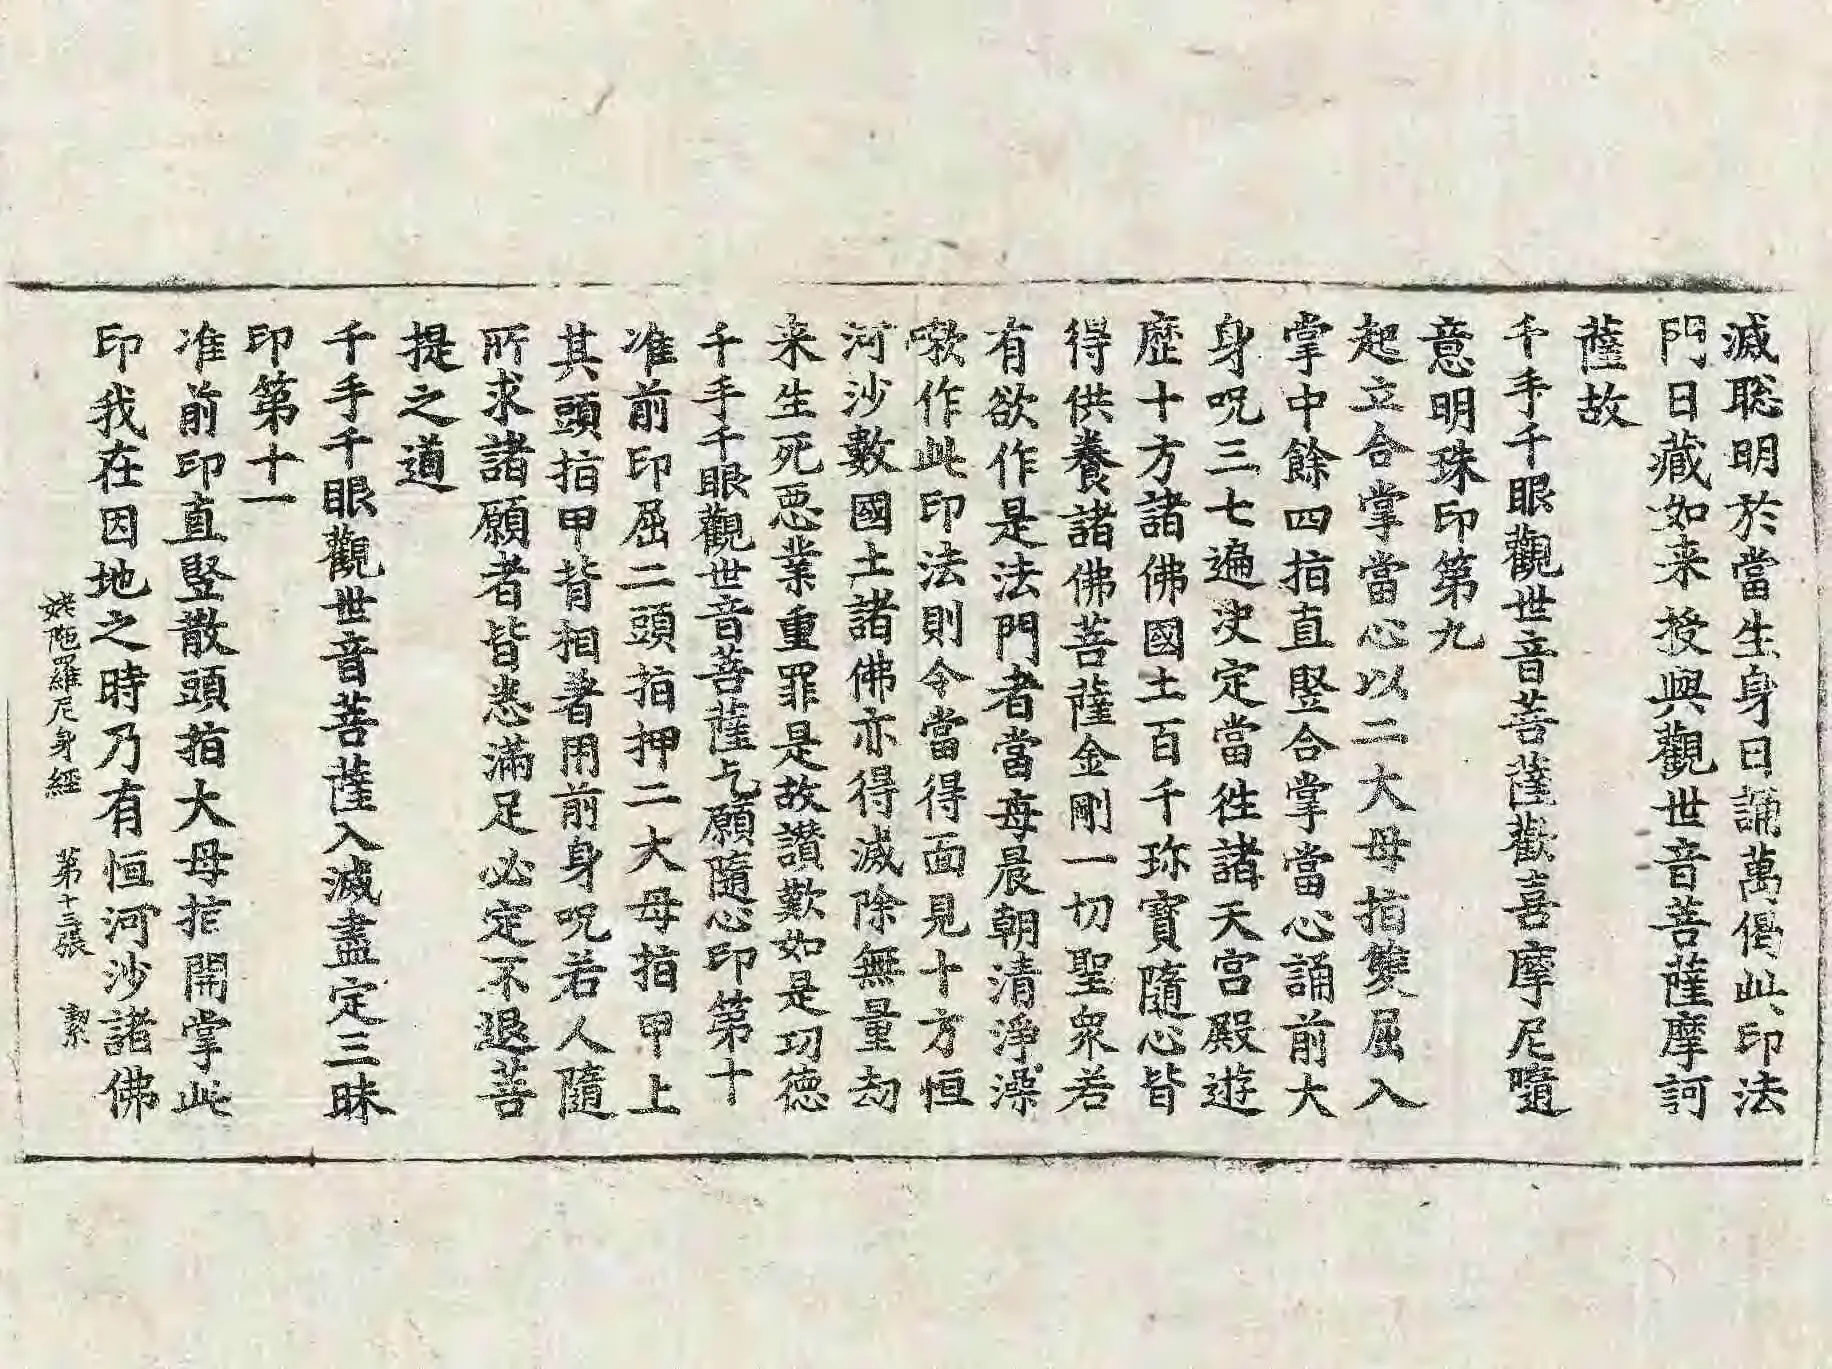 滅聡明於當生身日誦萬偈此印法
門日藏如来授與觀世音菩薩摩訶
薩故
千手千眼觀世音菩薩歡喜摩尼隨
意明珠印第九
起立合掌當心以二大母指雙屈入
掌中餘四指直竪合掌當心誦前大
身呪三七遍决定當徃諸天宫殿遊
歷十方諸佛國土百千珎寶隨心皆
得供養諸佛菩薩金剛一切聖衆若
有欲作是法門者當每晨朝清淨澡
嗽作此印法則令當得面見十方恒
河沙數國土諸佛亦得滅除無量劫
来生死惡業重罪是故讃歎如是功德
千手千眼觀世音菩薩乞願隨心印第十
准前印屈二頭指押二大母指甲上
其頭指甲背相著用前身呪若人隨
所求諸願者皆悉滿足必定不退菩
提之道
千手千眼觀世音菩薩入滅盡定三昧
印第十一
准前印直竪散頭指大母指開掌此
印我在因地之時乃有恒河沙諸佛
姥陁羅尼身經 第十三張 潔